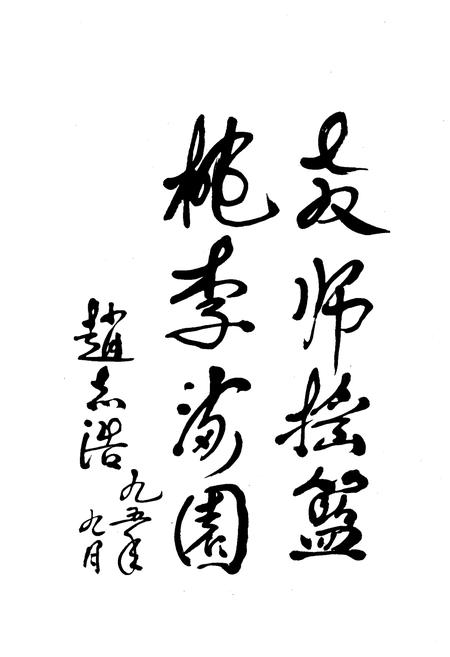 教师摇篮
桃李满園
趙志浩
九五年
九月